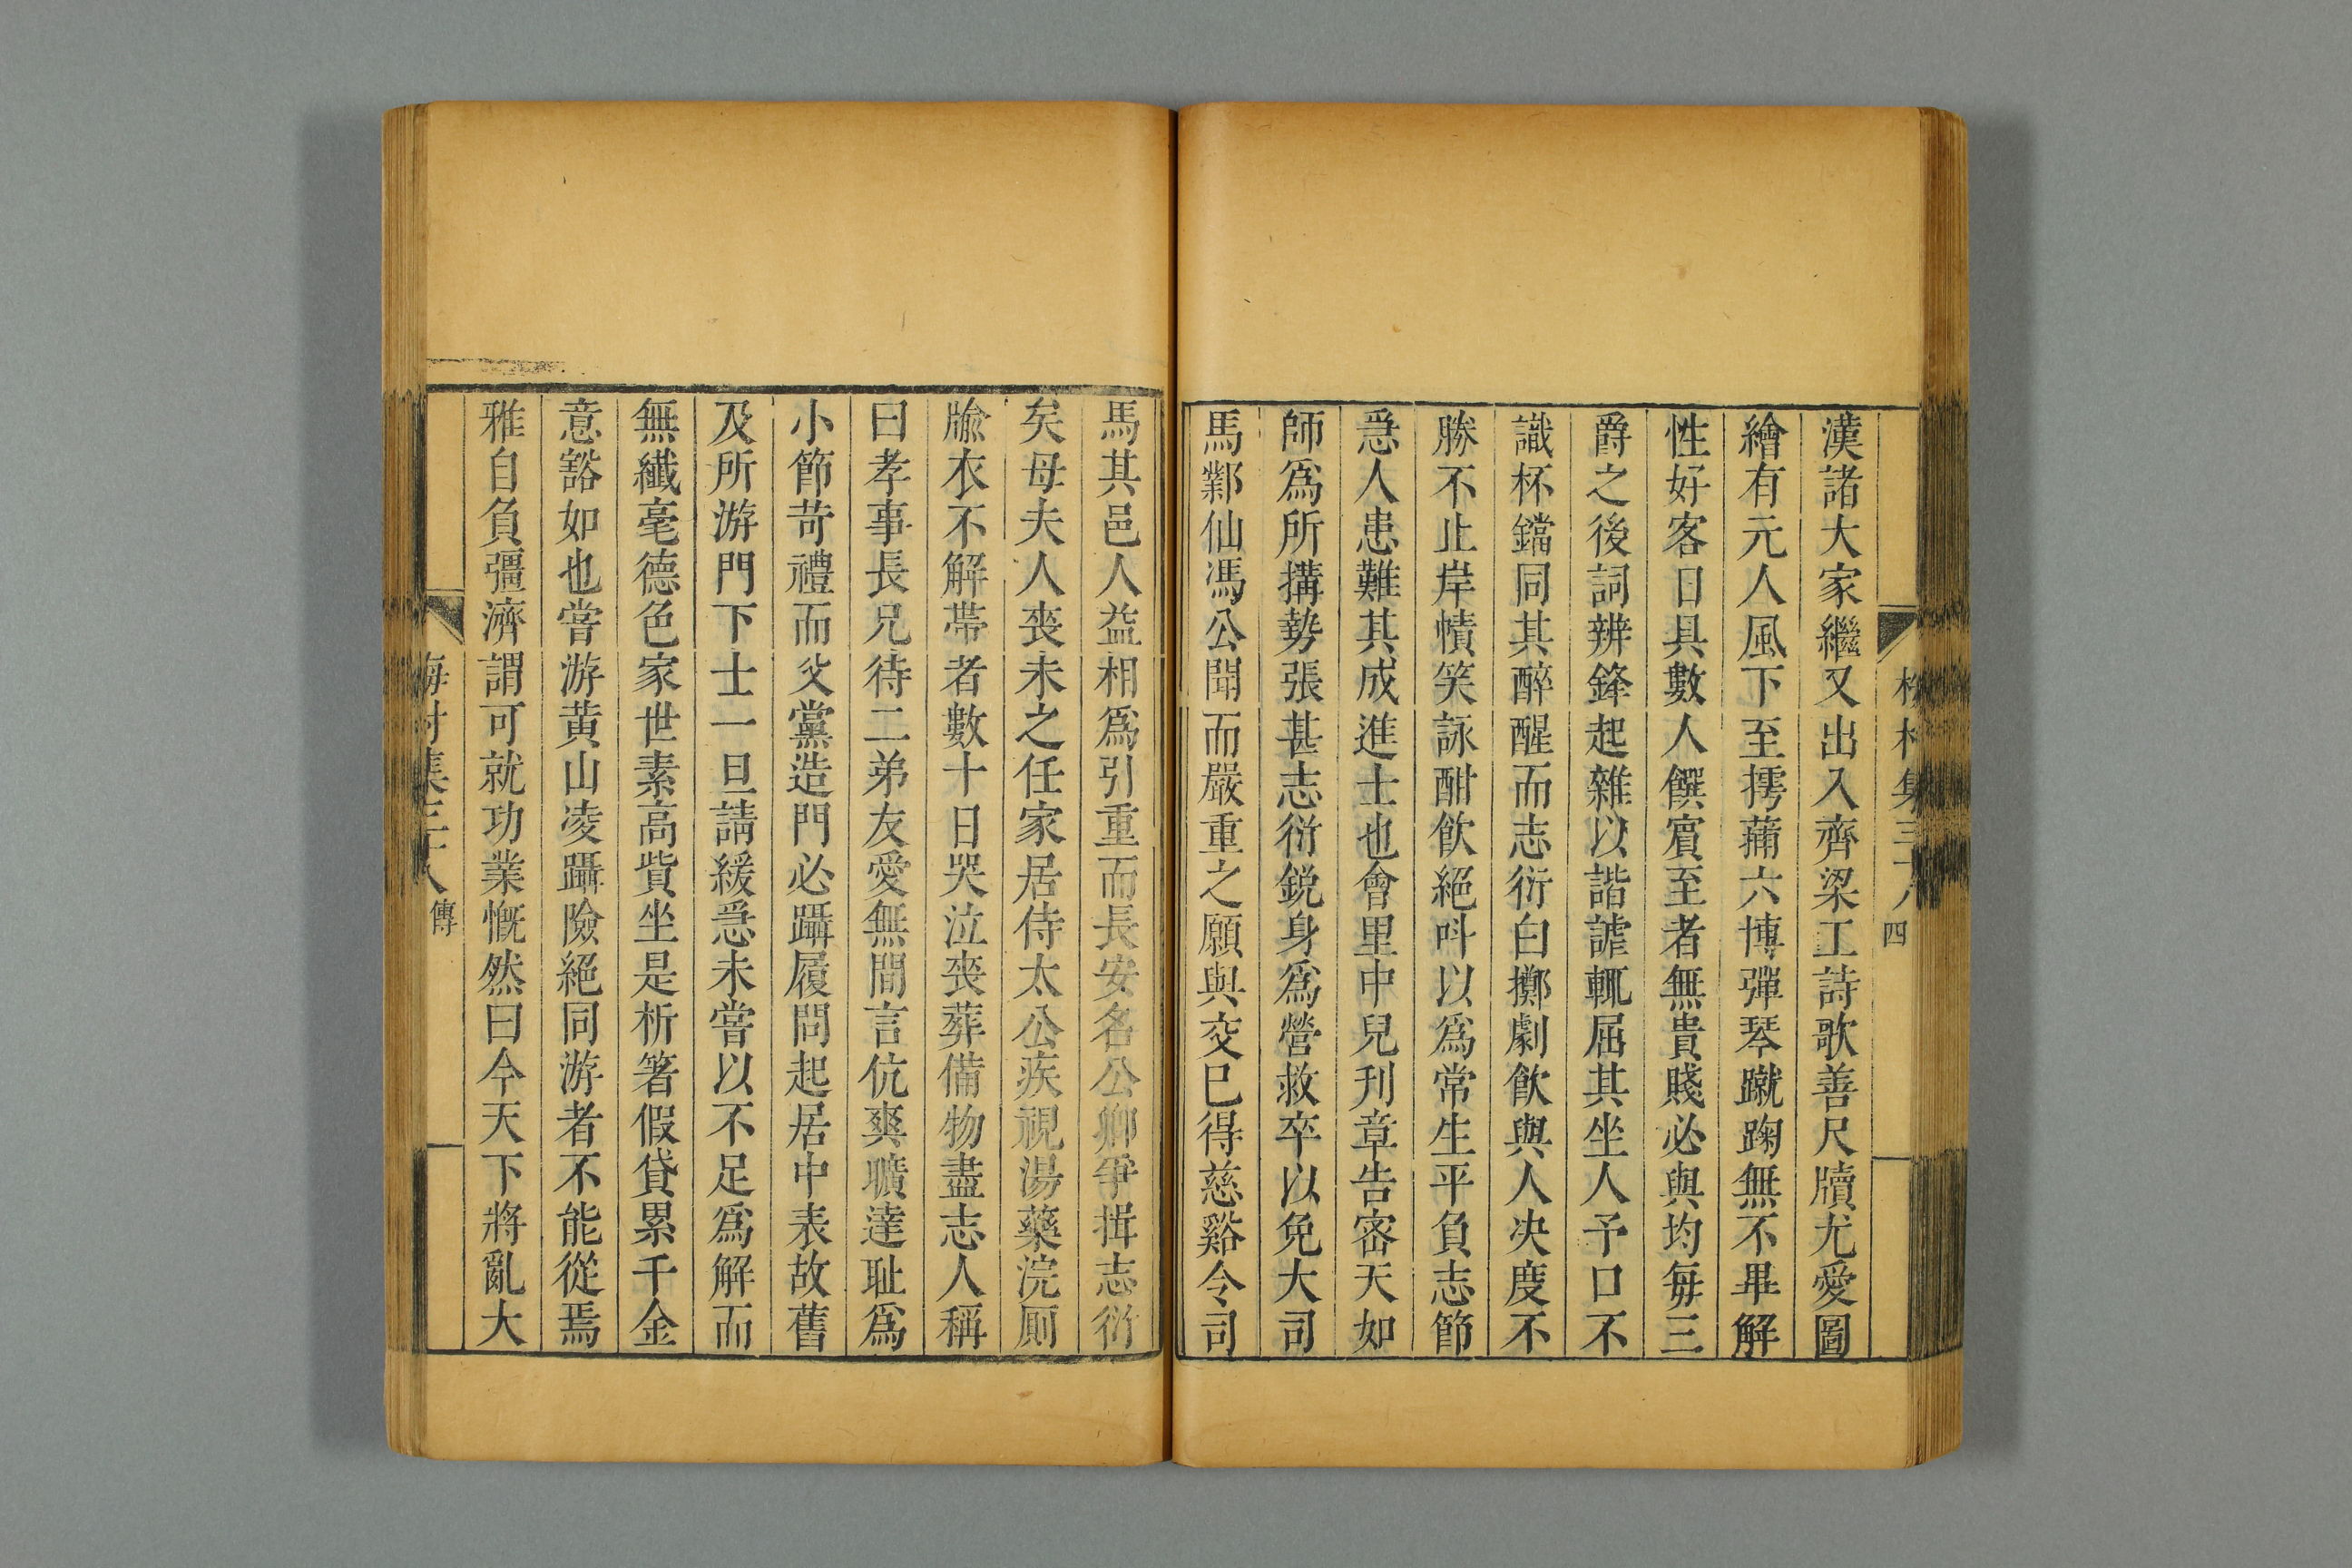 漢諸大家繼又出入齊梁工詩歌善尺牘尤愛圖
繪有元人風下至摴蒱六博彈琴蹴踘無不畢解
性好客日具數人饌賓至者無貴賤必與均每三
爵之後詞辨鋒起雜以諧謔輒屈其坐人予口不
識杯鐺同其醉醒而志衍白擲劇飲與人决度不
勝不止岸幘笑詠酣飲絕呌以爲常生平負志節
急人患難其成進士也會里中兒刋章告密天如
師爲所搆勢張甚志衍銳身爲營救卒以免大司
馬鄴仙馮公聞而嚴重之願與交已得慈谿令司
馬其邑人益相爲引重而長安名公卿爭揖志衍
矣母夫人喪未之任家居侍太公疾視湯藥浣厠
牏衣不解帶者數十日哭泣喪葬備物盡志人稱
曰孝事長兄待二弟友愛無間言伉爽曠達耻爲
小節苛禮而父黨造門必躡履問起居中表故舊
及所游門下士一旦請緩急未嘗以不足爲解而
無纖毫德色家世素高貲坐是析箸假貸累千金
意豁如也嘗游黃山凌躡險絕同游者不能從焉
雅自負彊濟謂可就功業慨然曰今天下將亂大
四
傳